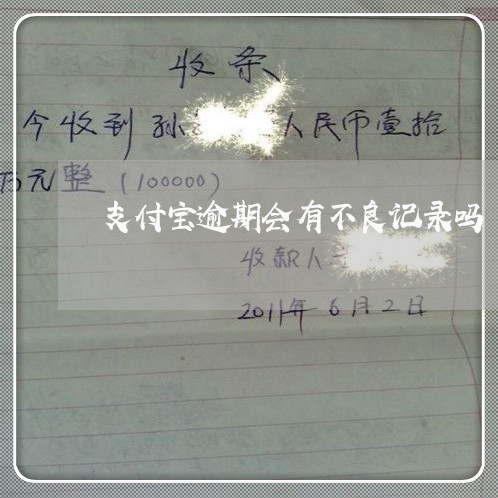 收条
今收到孙 人民币壹拾
万元整(100000)
支付宝逾期会有不良记录吗
收款人
2011年6月2日